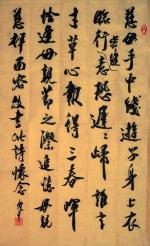 慈母手中线遊子身上衣
臨行密密縫意恐遲遲歸誰言
寸草心報得三春暉
恰逢母親節之際追憶母親
慈祥面容故書此詩懷念